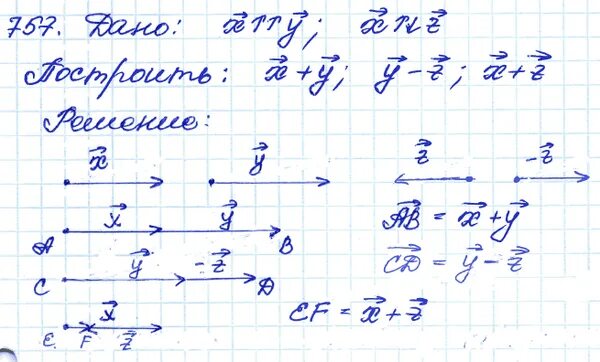 757. Дано: x⃗ ↑↑ y⃗; x⃗ ↑↓ z⃗
Построить: x⃗ + y⃗; y⃗ - z⃗; x⃗ + z⃗
Решение:
x⃗ y⃗ z⃗ -z⃗
x⃗ y⃗
A B
AB⃗ = x⃗ + y⃗
y⃗ -z⃗
C D
CD⃗ = y⃗ - z⃗
x⃗
E F z⃗
EF = x⃗ + z⃗